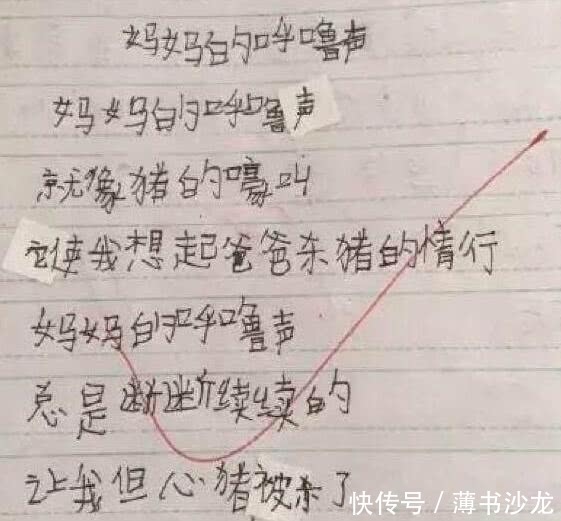 妈妈的呼噜声
妈妈的呼噜声
就像猪的嚎叫
它使我想起爸爸杀猪的情行
妈妈的呼噜声
总是断断续续的
让我但心猪被杀了
快传号 / 薄书沙龙